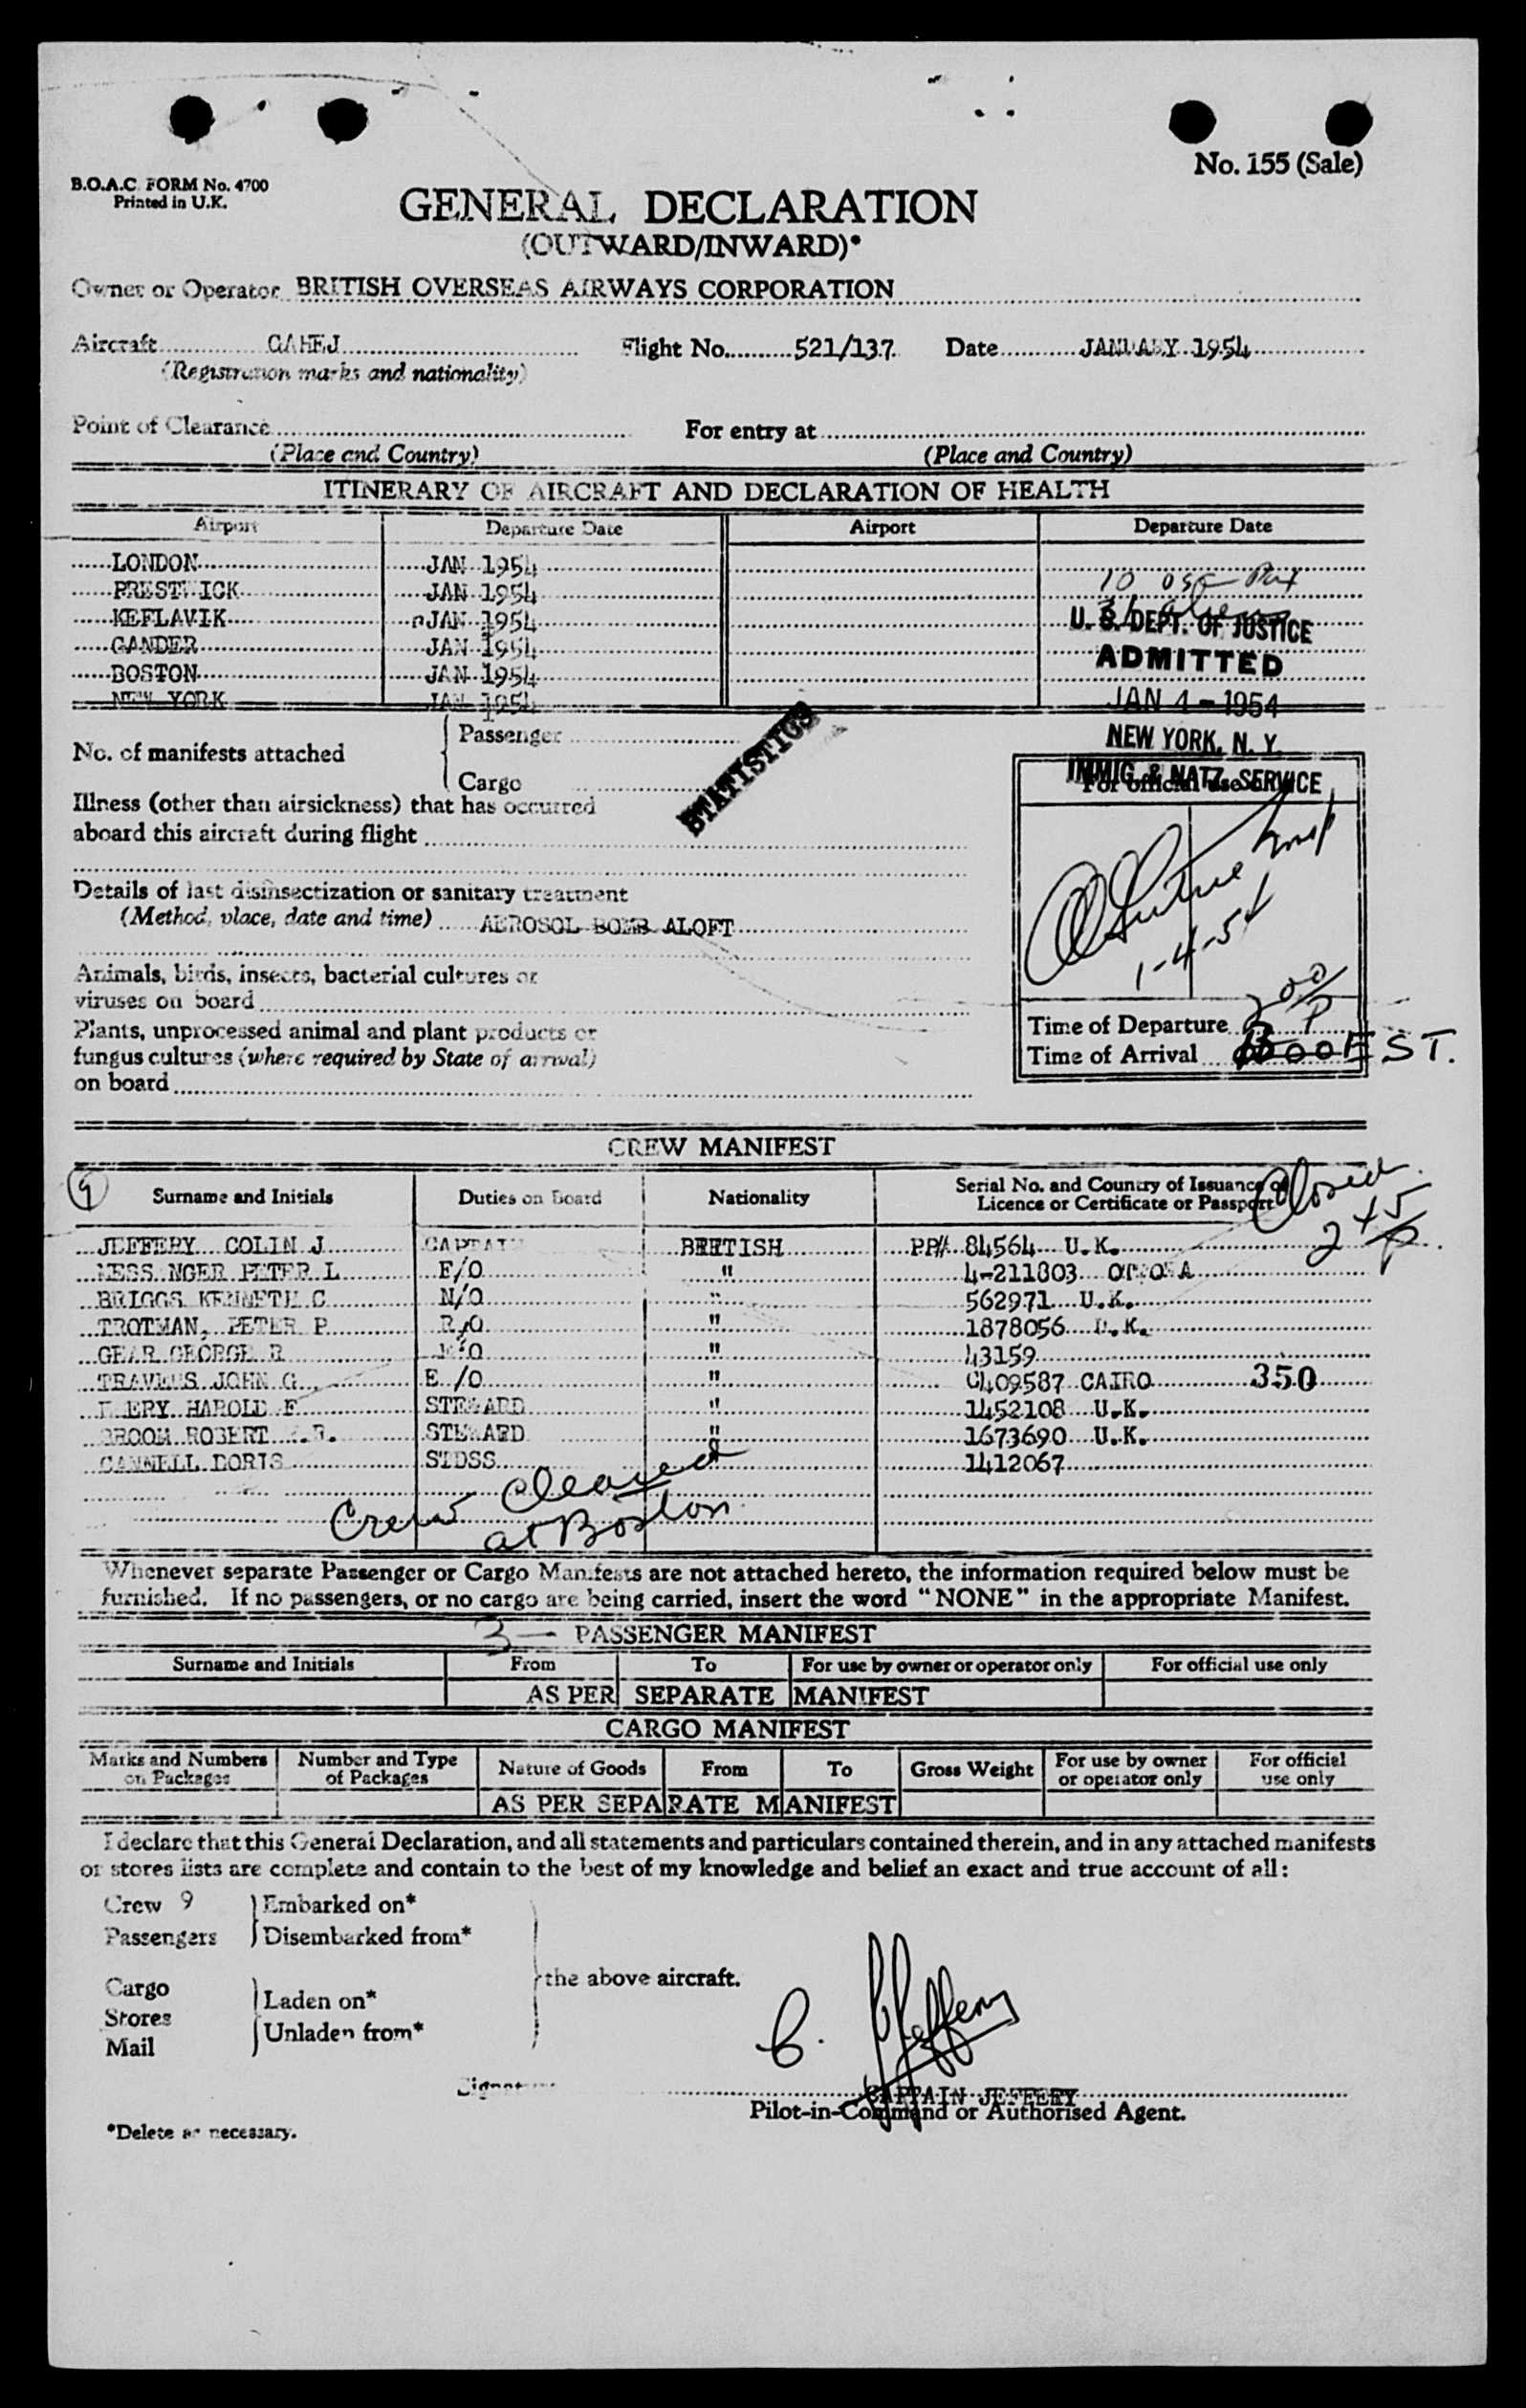 No. 155 (Sale)
B.O.A.C. FORM No. 4700
Printed in U.K.
GENERAL DECLARATION
(OUTWARD/INWARD)*
Owner or Operator BRITISH OVERSEAS AIRWAYS CORPORATION
Aircraft GAHEJ Flight No. 521/137 Date JANUARY 1954
(Registration marks and nationality)
Point of Clearance For entry at
(Place and Country) (Place and Country)
ITINERARY OF AIRCRAFT AND DECLARATION OF HEALTH
Airport Departure Date Airport Departure Date
LONDON JAN 1954
PRESTWICK JAN 1954 10
KEFLAVIK JAN 1954 U. S. DEPT. OF JUSTICE
GANDER JAN 1954 ADMITTED
BOSTON JAN 1954
NEW YORK JAN 1954 JAN 4 - 1954
NEW YORK, N. Y.
IMMIG. & NATZ. SERVICE
For official use
No. of manifests attached
Passenger
Cargo
STATISTICS
Illness (other than airsickness) that has occurred
aboard this aircraft during flight
Details of last disinsectization or sanitary treatment
(Method, place, date and time) AEROSOL BOMB ALOFT
1-4-54
Animals, birds, insects, bacterial cultures or
viruses on board
Plants, unprocessed animal and plant products or
fungus cultures (where required by State of arrival)
on board
200
P
Time of Departure
Time of Arrival EST.
CREW MANIFEST
9
Surname and Initials Duties on Board Nationality Serial No. and Country of Issuance of
Licence or Certificate or Passport
Closed
245
P
JEFFERY COLIN J CAPTAIN BRITISH PP# 84564 U.K.
MESSINGER PETER L F/O " 4-211803 OTTOWA
BRIGGS KENNETH C N/O " 562971 U.K.
TROTMAN, PETER P R/O " 1878056 U.K.
GEAR GEORGE R E/O " 43159
TRAVERS JOHN G E/O " C409587 CAIRO 350
HAROLD F STEWARD " 1452108 U.K.
BROOM ROBERT STEWARD " 1673690 U.K.
CANNELL DORIS STDSS " 1412067
Crew cleared
at Boston
Whenever separate Passenger or Cargo Manifests are not attached hereto, the information required below must be
furnished. If no passengers, or no cargo are being carried, insert the word "NONE" in the appropriate Manifest.
3 - PASSENGER MANIFEST
Surname and Initials From To For use by owner or operator only For official use only
AS PER SEPARATE MANIFEST
CARGO MANIFEST
Marks and Numbers on Packages Number and Type of Packages Nature of Goods From To Gross Weight For use by owner or operator only For official use only
AS PER SEPARATE MANIFEST
I declare that this General Declaration, and all statements and particulars contained therein, and in any attached manifests
or stores lists are complete and contain to the best of my knowledge and belief an exact and true account of all:
Crew 9 Embarked on*
Passengers Disembarked from*
the above aircraft.
Cargo
Stores
Mail
Laden on*
Unladen from*
C. J. Jeffery
Signature CAPTAIN JEFFERY
Pilot-in-Command or Authorised Agent.
*Delete as necessary.